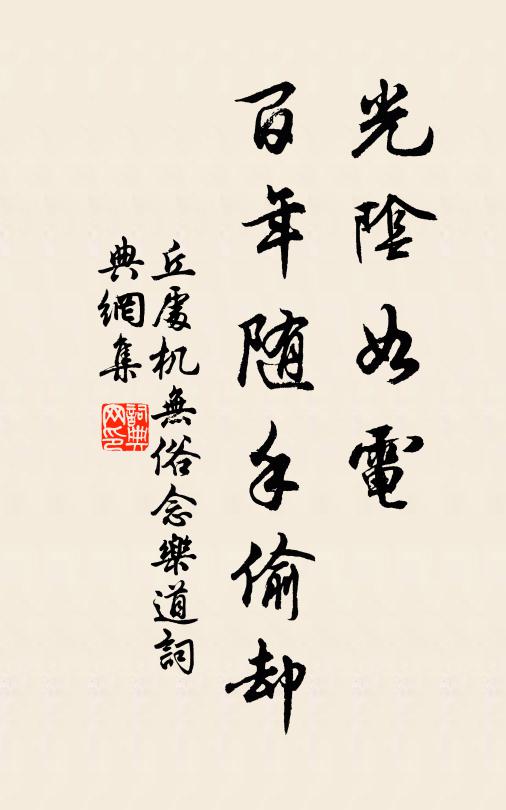 光陰如電
百年随手偷却
丘處机無俗念樂道詞
典網集
詞典网印